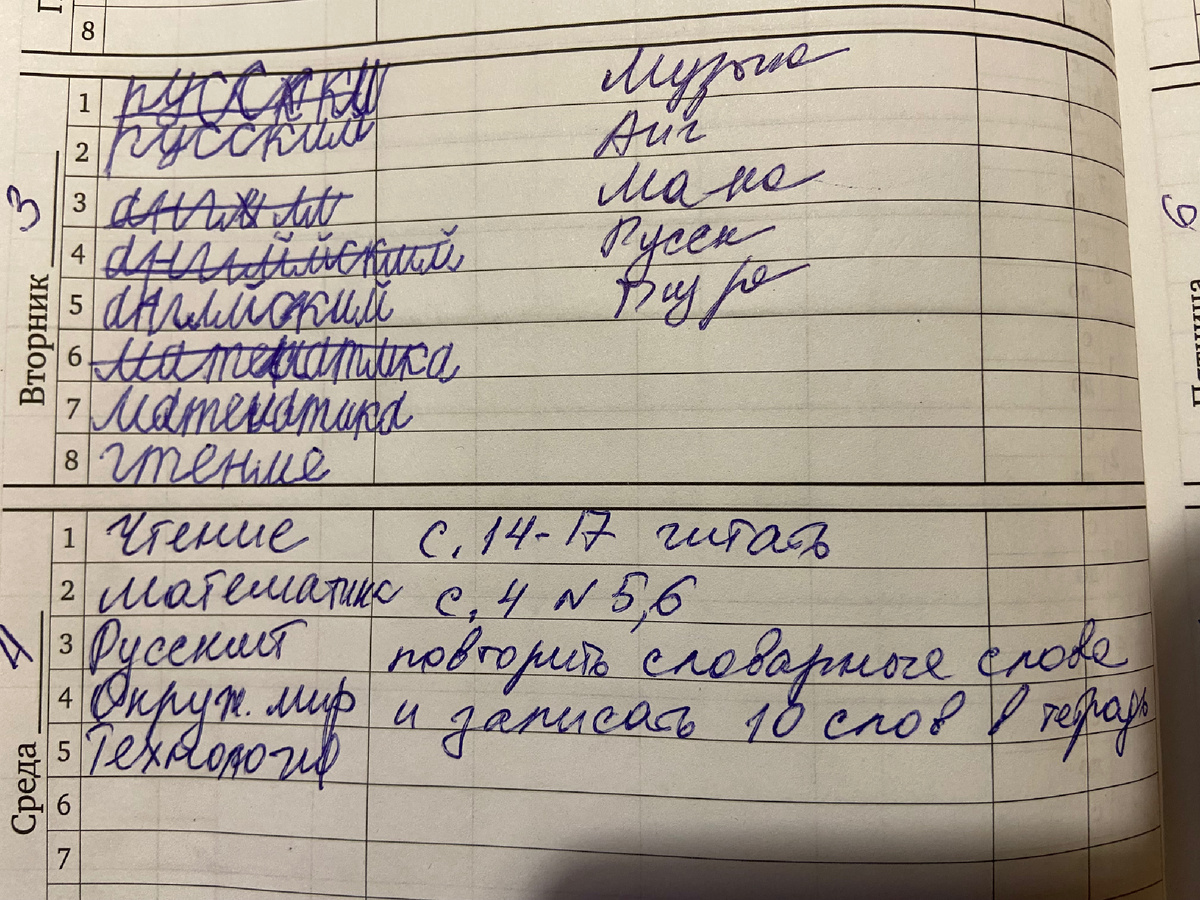 8
Вторник 3
1 русский Музыка
2 русский Анг
3
4 английский Русск
5 английский
6 математика
7 математика
8 чтение
Среда 4
1 Чтение с. 14-17 читать
2 Математика с. 4 № 5,6
3 Русский повторить словарные слова
4 Окруж. мир и записать 10 слов в тетрадь
5 Технология
6
7
6
Пятница